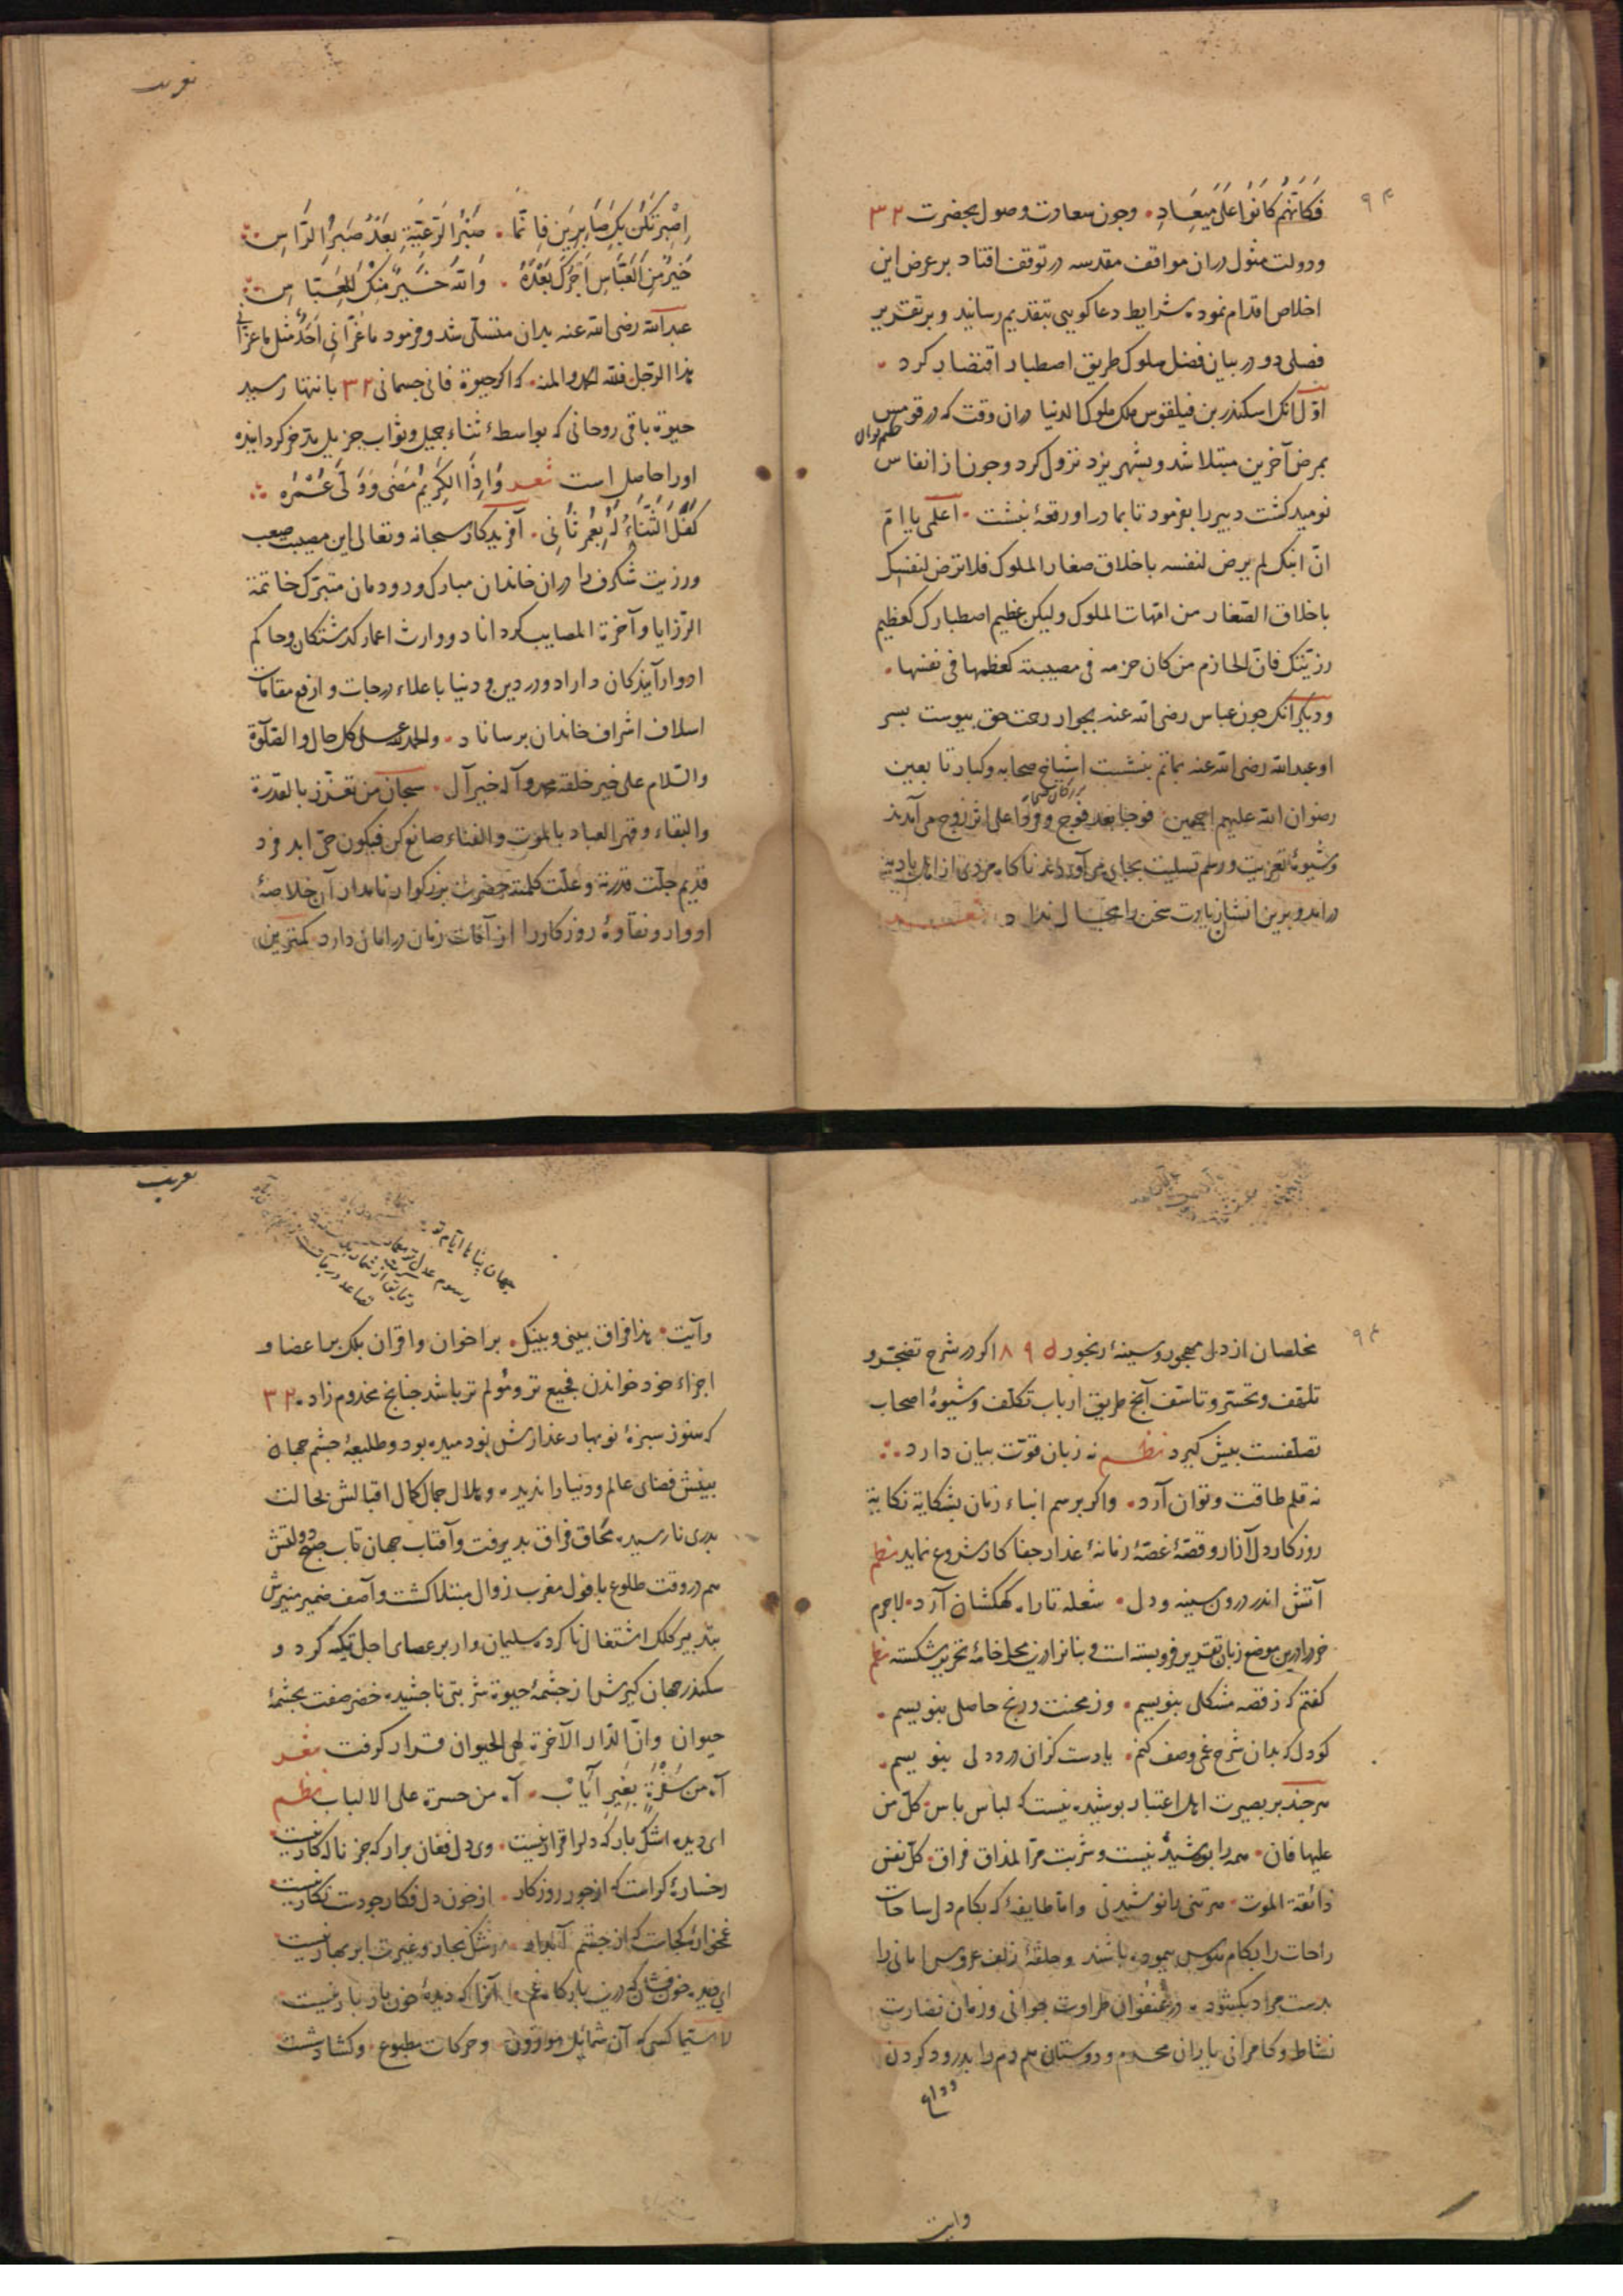 فَكَأَنَّهُمْ كَانُوا عَلَى مِيعَادِ . وجون سعاوت وصول بحضرت ٣٢
ودولت مثول دران مواقف مقدسه در توقف افتاد بر عرض این
اخلاص اقدام نموده شرایط دعا کویی بتقدیم رسانید و بر تقدیر
فصلی دو در بیان فضل ملوک طریق اصطبار اقتصار کرد .
اوّل انک اسکندر بن فیلقوس ملک ملوک الدنیا دران وقت که در قومس
بمرض آخرین مبتلا شد و بشهر یزد نزول کرد وجون از انفاس
نومید کشت دبیر را بفرمود تا بمادر او رقعهٔ بنبشت . اعلمی یا امّ
انّ ابنک لم یرض لنفسه باخلاق صغار الملوک فلا ترض لنفسک
باخلاق الصّغار من امّهات الملوک ولیکن عظیم اصطبارک کعظیم
رزیّتک فانّ الحازم من کان حزمه فی مصیبته کعظمها فی نفسها .
ودیکر انک جون عباس رضی الله عنه بجوار رحمت حق بیوست بسر
او عبدالله رضی الله عنه بماتم بنشست اشیاخ صحابه وکبار تابعین
رضوان الله علیهم اجمعین فوجا بعد فوج وفوجا علی اثر زوج می آمدند
وشیوهٔ تعزیت ورسم تسلیت بجای می آوردند ناکاه مردی از اهل بادیه
درامد و برین انشاد یارت سخن را مجال نداد شعر
اِصْبِرْ نَكُنْ بِكَ صَابِرِينَ فَاِنَّمَا . صَبْرُ الرَّعِيَّةِ بَعْدَ صَبْرِ الرَّاسِ
خَيْرٌ مِنَ الْعَبَّاسِ اَجْرُكَ بَعْدَهُ . وَاللّٰهُ خَيْرٌ مِنْكَ لِلْعَبَّاسِ
عبدالله رضی الله عنه بدان متسلّی شد وفرمود ما عَزّانی اَحَدٌ مثل ما عزانی
هذا الرّجل فلله الحمد والمنه . که اکر حیوة فانی جسمانی ٣٢ بانتها رسید
حیوة باقی روحانی که بواسطهٔ ثناء جمیل وثواب جزیل مدّخر کردانیده
اورا حاصل است شعر وَاِذَا الْكَرِيمُ مَضَى وَوَلَّى عُمْرُهُ
كَفَلَ الثَّنَاءُ لَهُ بِعُمْرٍ ثَانِی . آفریدکار سبحانه وتعالی این مصیبت صعب
ورزیت شکرف را دران خاندان مبارک ودودمان متبرّک خاتمة
الرّزایا وآخرة المصایب کرداناد ووارث اعمار کذشتکان وحاکم
ادوار آیندکان داراد ودر دین ودنیا باعلاء درجات وارفع مقامات
اسلاف اشراف خاندان برساناد . والحمد لله علی کل حال والصّلوة
والسّلام علی خیر خلقه محمد وآله خیر آل . سبحان من تعزّز بالقدرة
والبقاء وقهر العباد بالموت والفناء صانع کن فیکون حیّ ابد فرد
قدیم جلّت قدرته وعلّت کلمته حضرت بزرکوار نامدار آن خلاصهٔ
ادوار ونقاوهٔ روزکار را از آفات زمان در امان دارد کمترین
مخلصان از دل مهجور وسینهٔ رنجور ٨٩٥ اکر در شرح تضجّر و
تلهّف وتحسّر وتاسّف آنچ طریق ارباب تکلّف وشیوهٔ اصحاب
تصلّفست بیش کیرد نظم نه زبان قوّت بیان دارد
نه قلم طاقت وتوان آرد . واکر برسم ابناء زمان بشکایة نکایة
روزکار دل آزار وقصّهٔ غصّهٔ زمانهٔ غدار جفا کار شروع نماید نظم
آتش اندر درون سینه ودل . شعله تا راه کهکشان آرد . لاجرم
خرد را درین موضع زبان تقدیر فرو بسته است وبنانرا درین محل خامهٔ تحریر شکسته نظم
کفتم که ز قصه مشکلی بنویسم . وز محنت ورنج حاصلی بنویسم .
کو دل که بدان شرح غمی وصف کنم . یا دست کزان درد دلی بنویسم .
هر چند بر بصیرت اهل اعتبار بوشیده نیست که لباس باس کلّ من
علیها فان . همه را بوشیدنیست وشربت مرّ المذاق فراق . کلّ نفس
ذائقة الموت . هر تنی را نوشیدنی وامّا طایفهٔ که بکام دل ساحات
راحات را بکام هوس بیموده باشند وحلقهٔ زلف عروس امانی را
بدست مراد بکشوده . در عنفوان طراوت جوانی وزمان نضارت
نشاط وکامرانی یاران محرم ودوستان همدم را بدرود کردن
وایت
جهان پناها ایام تو
وآیت . هذا فراق بینی وبینک . بر اخوان واقران بلک بر اعضا و
اجزاء خود خواندن فجیع تر ومؤلم تر باشد جنانچ مخدوم زاد ٣٢
که هنوز سبزهٔ نوبهار عذارش نودمیده بود وطلیعهٔ چشم جهان
بینش فضای عالم ودنیا را ندیده وهلال جمال کمال اقبالش بحالت
بدری نارسیده محاق فراق بدیرفت وآفتاب جهان تاب صبح دولتش
هم در وقت طلوع بافول مغرب زوال مبتلا کشت وآصف ضمیر منیرش
بتدبیر کلک اشتغال ناکرده سلیمان وار بر عصای اجل تکیه کرد و
سکندر جهان کیرش از جشمهٔ حیوة شربتی ناجشیده خضر صفت بجشمهٔ
حیوان وانّ الدّار الآخرة لهی الحیوان قرار کرفت شعر
آه من سُفْرَةٍ بِغَيْرِ اَيَابْ . آه من حسرة علی الالباب نظم
ای دیده اشک بار که دلرا قرار نیست . وی دل فغان برار که جز ناله کار نیست
رخسارهٔ کراست که از جور روزکار . از خون دل فکار جو دست نکار نیست
غمخوارهٔ کجاست که از چشم آبدار . رشک بحار وغیرت ابر بهار نیست
ای دیده خون فشان که درین بارکاه غم . آنرا که دیدهٔ خون بار بار نیست
لا سیّما کسی که آن شمائل موزون . وحرکات مطبوع . وکشادشت